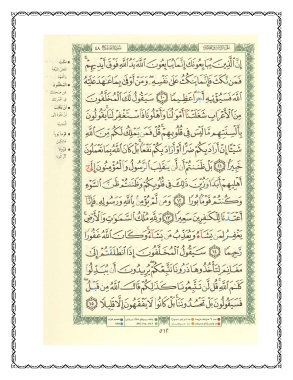 ٤٨
إِنَّ ٱلَّذِينَ يُبَايِعُونَكَ إِنَّمَا يُبَايِعُونَ ٱللَّهَ يَدُ ٱللَّهِ فَوْقَ أَيْدِيهِمْ
فَمَن نَّكَثَ فَإِنَّمَا يَنكُثُ عَلَىٰ نَفْسِهِۦ وَمَنْ أَوْفَىٰ بِمَا عَٰهَدَ عَلَيْهُ
ٱللَّهَ فَسَيُؤْتِيهِ أَجْرًا عَظِيمًا ١٠ سَيَقُولُ لَكَ ٱلْمُخَلَّفُونَ
مِنَ ٱلْأَعْرَابِ شَغَلَتْنَآ أَمْوَٰلُنَا وَأَهْلُونَا فَٱسْتَغْفِرْ لَنَا يَقُولُونَ
بِأَلْسِنَتِهِم مَّا لَيْسَ فِى قُلُوبِهِمْ قُلْ فَمَن يَمْلِكُ لَكُم مِّنَ ٱللَّهِ
شَيْـًٔا إِنْ أَرَادَ بِكُمْ ضَرًّا أَوْ أَرَادَ بِكُمْ نَفْعًۢا بَلْ كَانَ ٱللَّهُ بِمَا تَعْمَلُونَ
خَبِيرًۢا ١١ بَلْ ظَنَنتُمْ أَن لَّن يَنقَلِبَ ٱلرَّسُولُ وَٱلْمُؤْمِنُونَ إِلَىٰٓ
أَهْلِيهِمْ أَبَدًا وَزُيِّنَ ذَٰلِكَ فِى قُلُوبِكُمْ وَظَنَنتُمْ ظَنَّ ٱلسَّوْءِ
وَكُنتُمْ قَوْمًۢا بُورًا ١٢ وَمَن لَّمْ يُؤْمِنۢ بِٱللَّهِ وَرَسُولِهِۦ فَإِنَّآ
أَعْتَدْنَا لِلْكَٰفِرِينَ سَعِيرًا ١٣ وَلِلَّهِ مُلْكُ ٱلسَّمَٰوَٰتِ وَٱلْأَرْضِ
يَغْفِرُ لِمَن يَشَآءُ وَيُعَذِّبُ مَن يَشَآءُ وَكَانَ ٱللَّهُ غَفُورًا
رَّحِيمًا ١٤ سَيَقُولُ ٱلْمُخَلَّفُونَ إِذَا ٱنطَلَقْتُمْ إِلَىٰ
مَغَانِمَ لِتَأْخُذُوهَا ذَرُونَا نَتَّبِعْكُمْ يُرِيدُونَ أَن يُبَدِّلُوا۟
كَلَٰمَ ٱللَّهِ قُل لَّن تَتَّبِعُونَا كَذَٰلِكُمْ قَالَ ٱللَّهُ مِن قَبْلُ
فَسَيَقُولُونَ بَلْ تَحْسُدُونَنَا بَلْ كَانُوا۟ لَا يَفْقَهُونَ إِلَّا قَلِيلًا ١٥
٥١٢